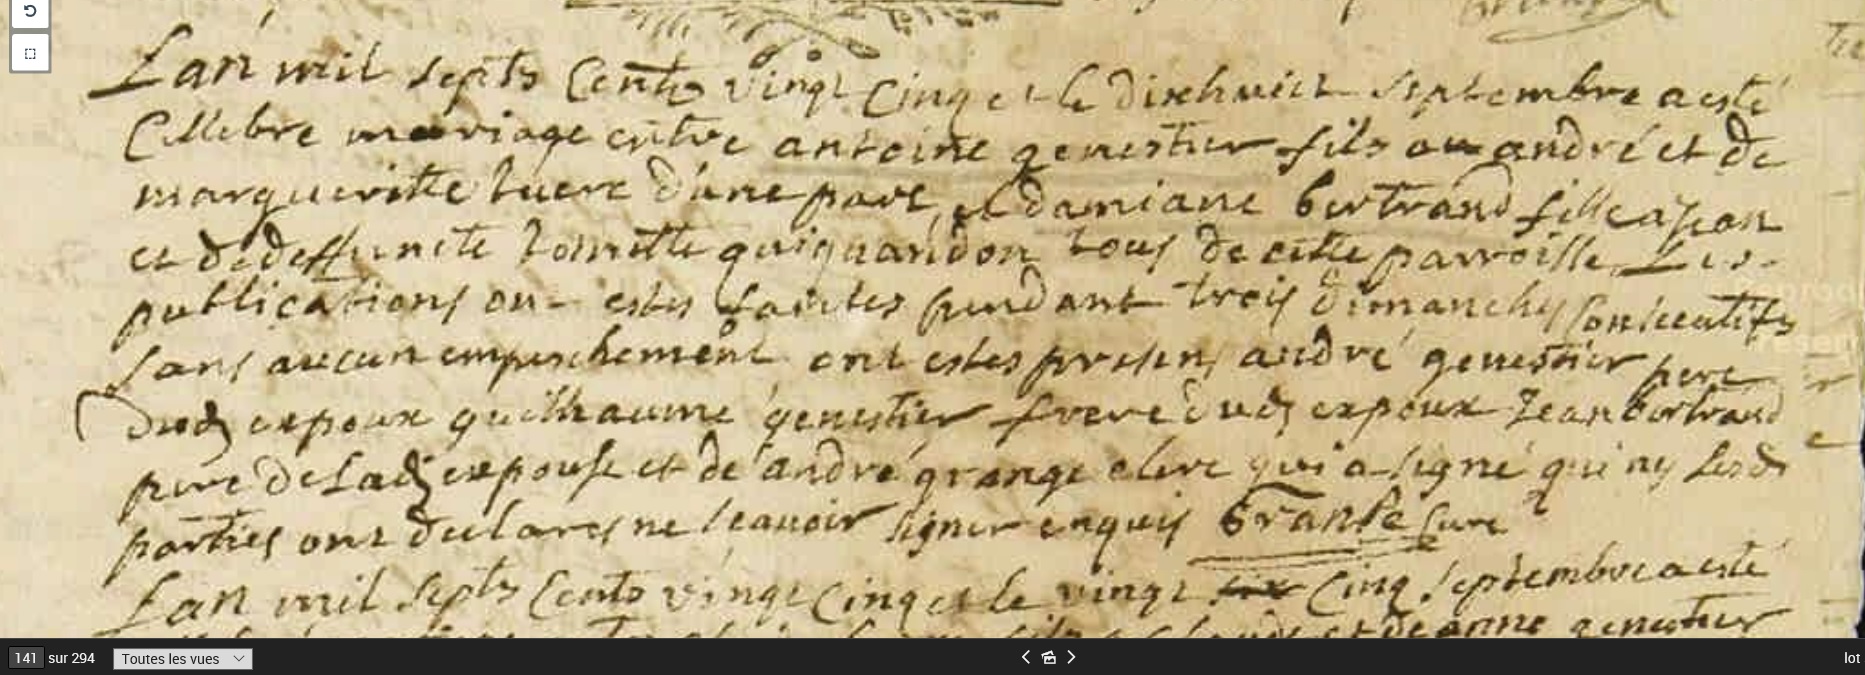 Lan mil septs Cents vingt Cinq et le dixhuict septembre a esté
Cellebre mariage entre antoine genestier fils a andré et de
margueritte d'une part, et damiane bertrand fille a Jean
et de deffuncte tous de cette parroisse Les
publications on estes faites pendant trois dimanches Consecutifs
sans aucun empeschement ont estes presens andré genestier pere
dud expoux guilhaume genestier frere dud expoux Jean bertrand
pere de Lad expouse et de andré grange clerc qui a signé qui ny Lesd
parties ont declares ne scavoir signer enquis Curé
Lan mil septs Cents vingt Cinq et le vingt six Cinq septembre a esté
genestier
141 sur 294
Toutes les vues
lot